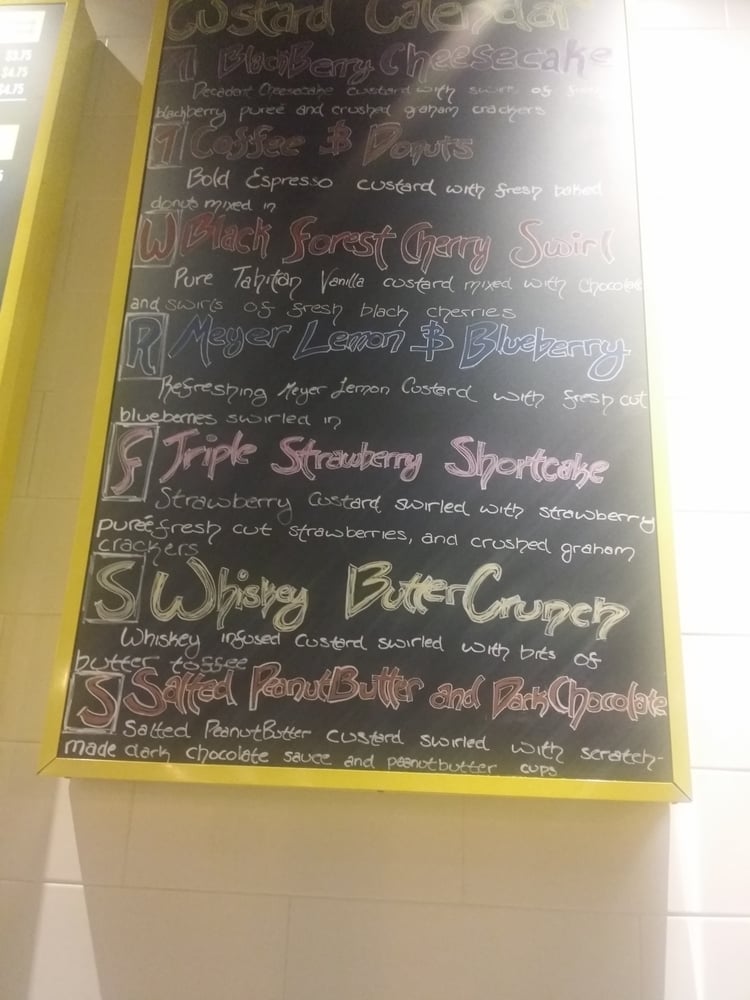 $3.75
$4.75
$4.75
Custard Calendar
1 BlackBerry Cheesecake
Decadent Cheesecake custard with swirls of
blackberry pureé and crushed graham crackers
T Coffee & Donuts
Bold Espresso custard with fresh baked
donuts mixed in
W Black Forest Cherry Swirl
Pure Tahitan Vanilla custard mixed with Chocolate
and swirls of fresh black cherries
R Meyer Lemon & Blueberry
Refreshing Meyer Lemon Custard with fresh cut
blueberries swirled in
F Triple Strawberry Shortcake
Strawberry Custard swirled with strawberry
pureé fresh cut strawberries, and crushed graham
crackers
S Whiskey ButterCrunch
Whiskey infused Custard swirled with bits of
butter toffee
S Salted PeanutButter and DarkChocolate
Salted PeanutButter custard swirled with scratch-
made dark chocolate sauce and peanutbutter cups